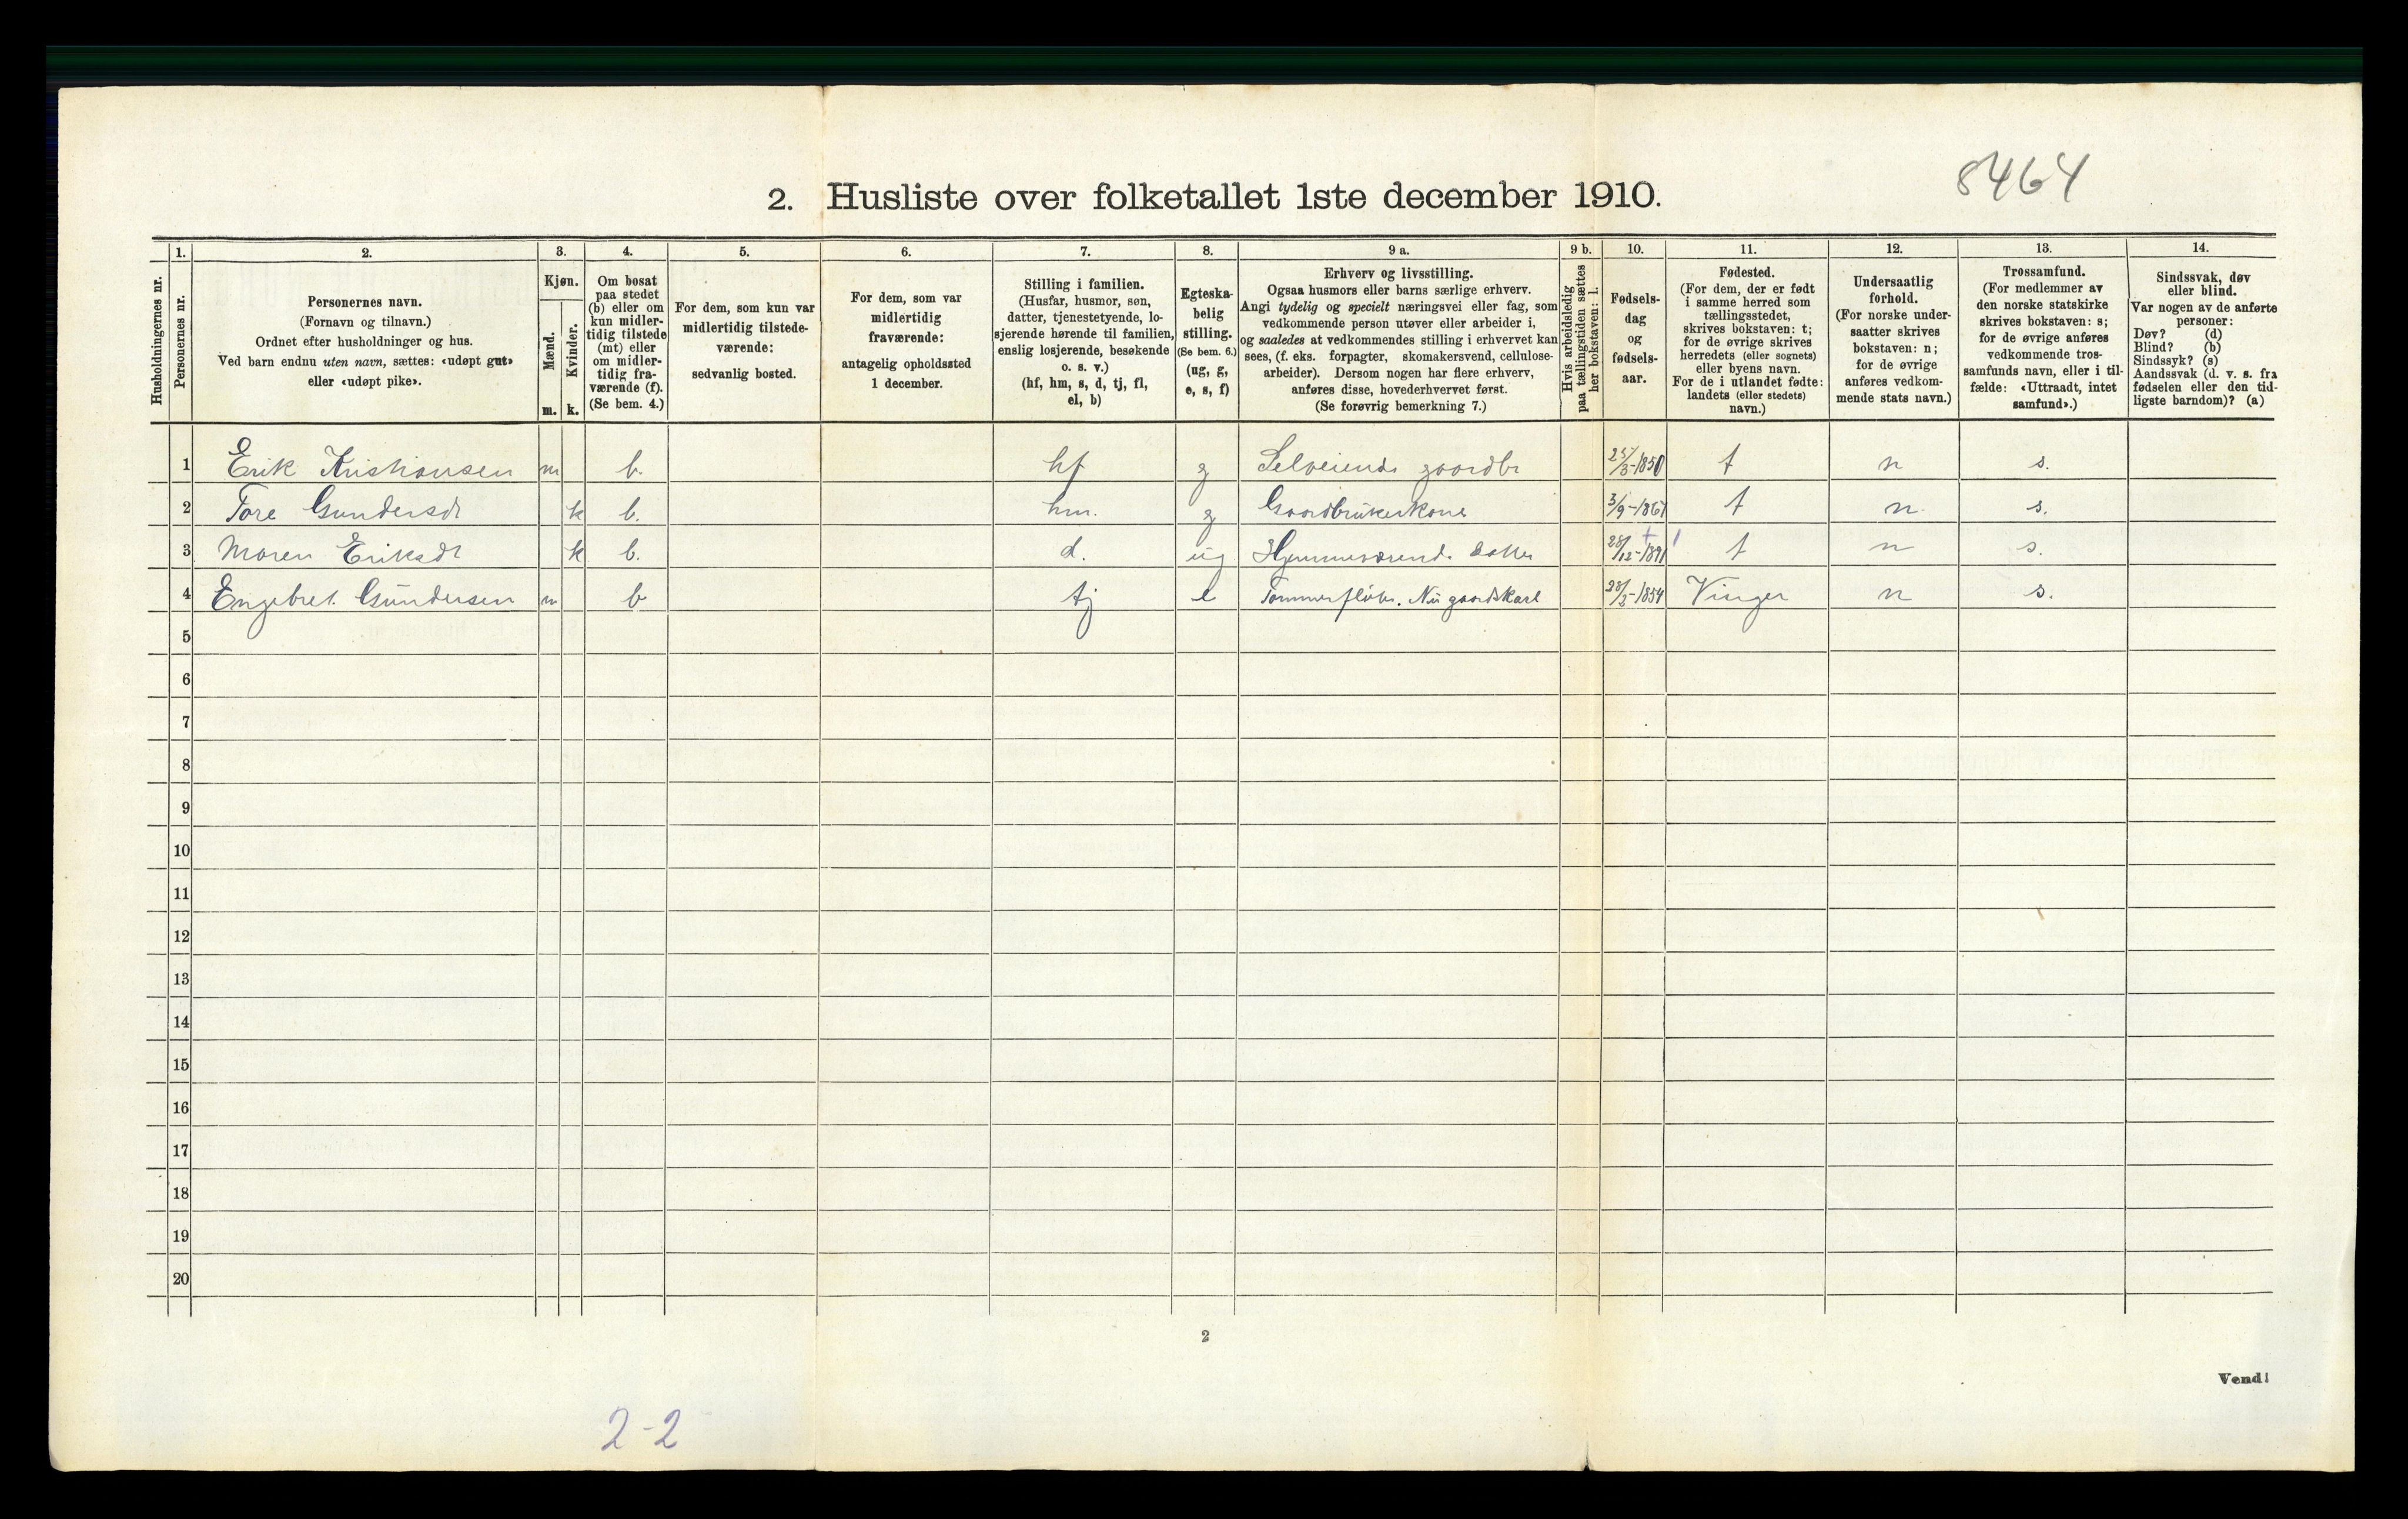 8464
2. Husliste over folketallet 1ste december 1910.
Husholdningernes nr.
1.
Personernes nr.
2.
Personernes navn.
(Fornavn og tilnavn.)
Ordnet efter husholdninger og hus.
Ved barn endnu uten navn, sættes: «udøpt gut»
eller «udøpt pike».
3.
Kjøn.
Mænd.
m.
Kvinder.
k.
4.
Om bosat
paa stedet
(b) eller om
kun midler-
tidig tilstede
(mt) eller
om midler-
tidig fra-
værende (f).
(Se bem. 4.)
5.
For dem, som kun var
midlertidig tilstede-
værende:
sedvanlig bosted.
6.
For dem, som var
midlertidig
fraværende:
antagelig opholdssted
1 december.
7.
Stilling i familien.
(Husfar, husmor, søn,
datter, tjenestetyende, lo-
sjerende hørende til familien,
enslig losjerende, besøkende
o. s. v.)
(hf, hm, s, d, tj, fl,
el, b)
8.
Egteska-
belig
stilling.
(Se bem. 6.)
(ug, g,
e, s, f)
9 a.
Erhverv og livsstilling.
Ogsaa husmors eller barns særlige erhverv.
Angi tydelig og specielt næringsvei eller fag, som
vedkommende person utøver eller arbeider i,
og saaledes at vedkommendes stilling i erhvervet kan
sees, (f. eks. forpagter, skomakersvend, cellulose-
arbeider). Dersom nogen har flere erhverv,
anføres disse, hovederhvervet først.
(Se forøvrig bemerkning 7.)
9 b.
Hvis arbeidsledig
paa tællingstiden sættes
her bokstaven: l.
10.
Fødsels-
dag
og
fødsels-
aar.
11.
Fødested.
(For dem, der er født
i samme herred som
tællingsstedet,
skrives bokstaven: t;
for de øvrige skrives
herredets (eller sognets)
eller byens navn.
For de i utlandet fødte:
landets (eller stedets)
navn.)
12.
Undersaatlig
forhold.
(For norske under-
saatter skrives
bokstaven: n;
for de øvrige
anføres vedkom-
mende stats navn.)
13.
Trossamfund.
(For medlemmer av
den norske statskirke
skrives bokstaven: s;
for de øvrige anføres
vedkommende tros-
samfunds navn, eller i til-
fælde: «Uttraadt, intet
samfund».)
14.
Sindssvak, døv
eller blind.
Var nogen av de anførte
personer:
Døv? (d)
Blind? (b)
Sindssyk? (s)
Aandssvak (d. v. s. fra
fødselen eller den tid-
ligste barndom)? (a)
1 Erik Kristiansen m b. hf g Selveiende gaardbr 25/3-1850 t n s.
2 Tore Gundersdt k b. hm. g Gaardbrukerkone 3/9-1867 t n. s.
3 Maren Eriksdt k b. d. ug Hjemmeværend. datter 28/12-1891 t n s.
4 Engebret Gundersen m b tj e Tømmerfløter. Nu gaardskarl 28/3-1854 Vinger n s.
5
6
7
8
9
10
11
12
13
14
15
16
17
18
19
20
2
Vend!
2-2